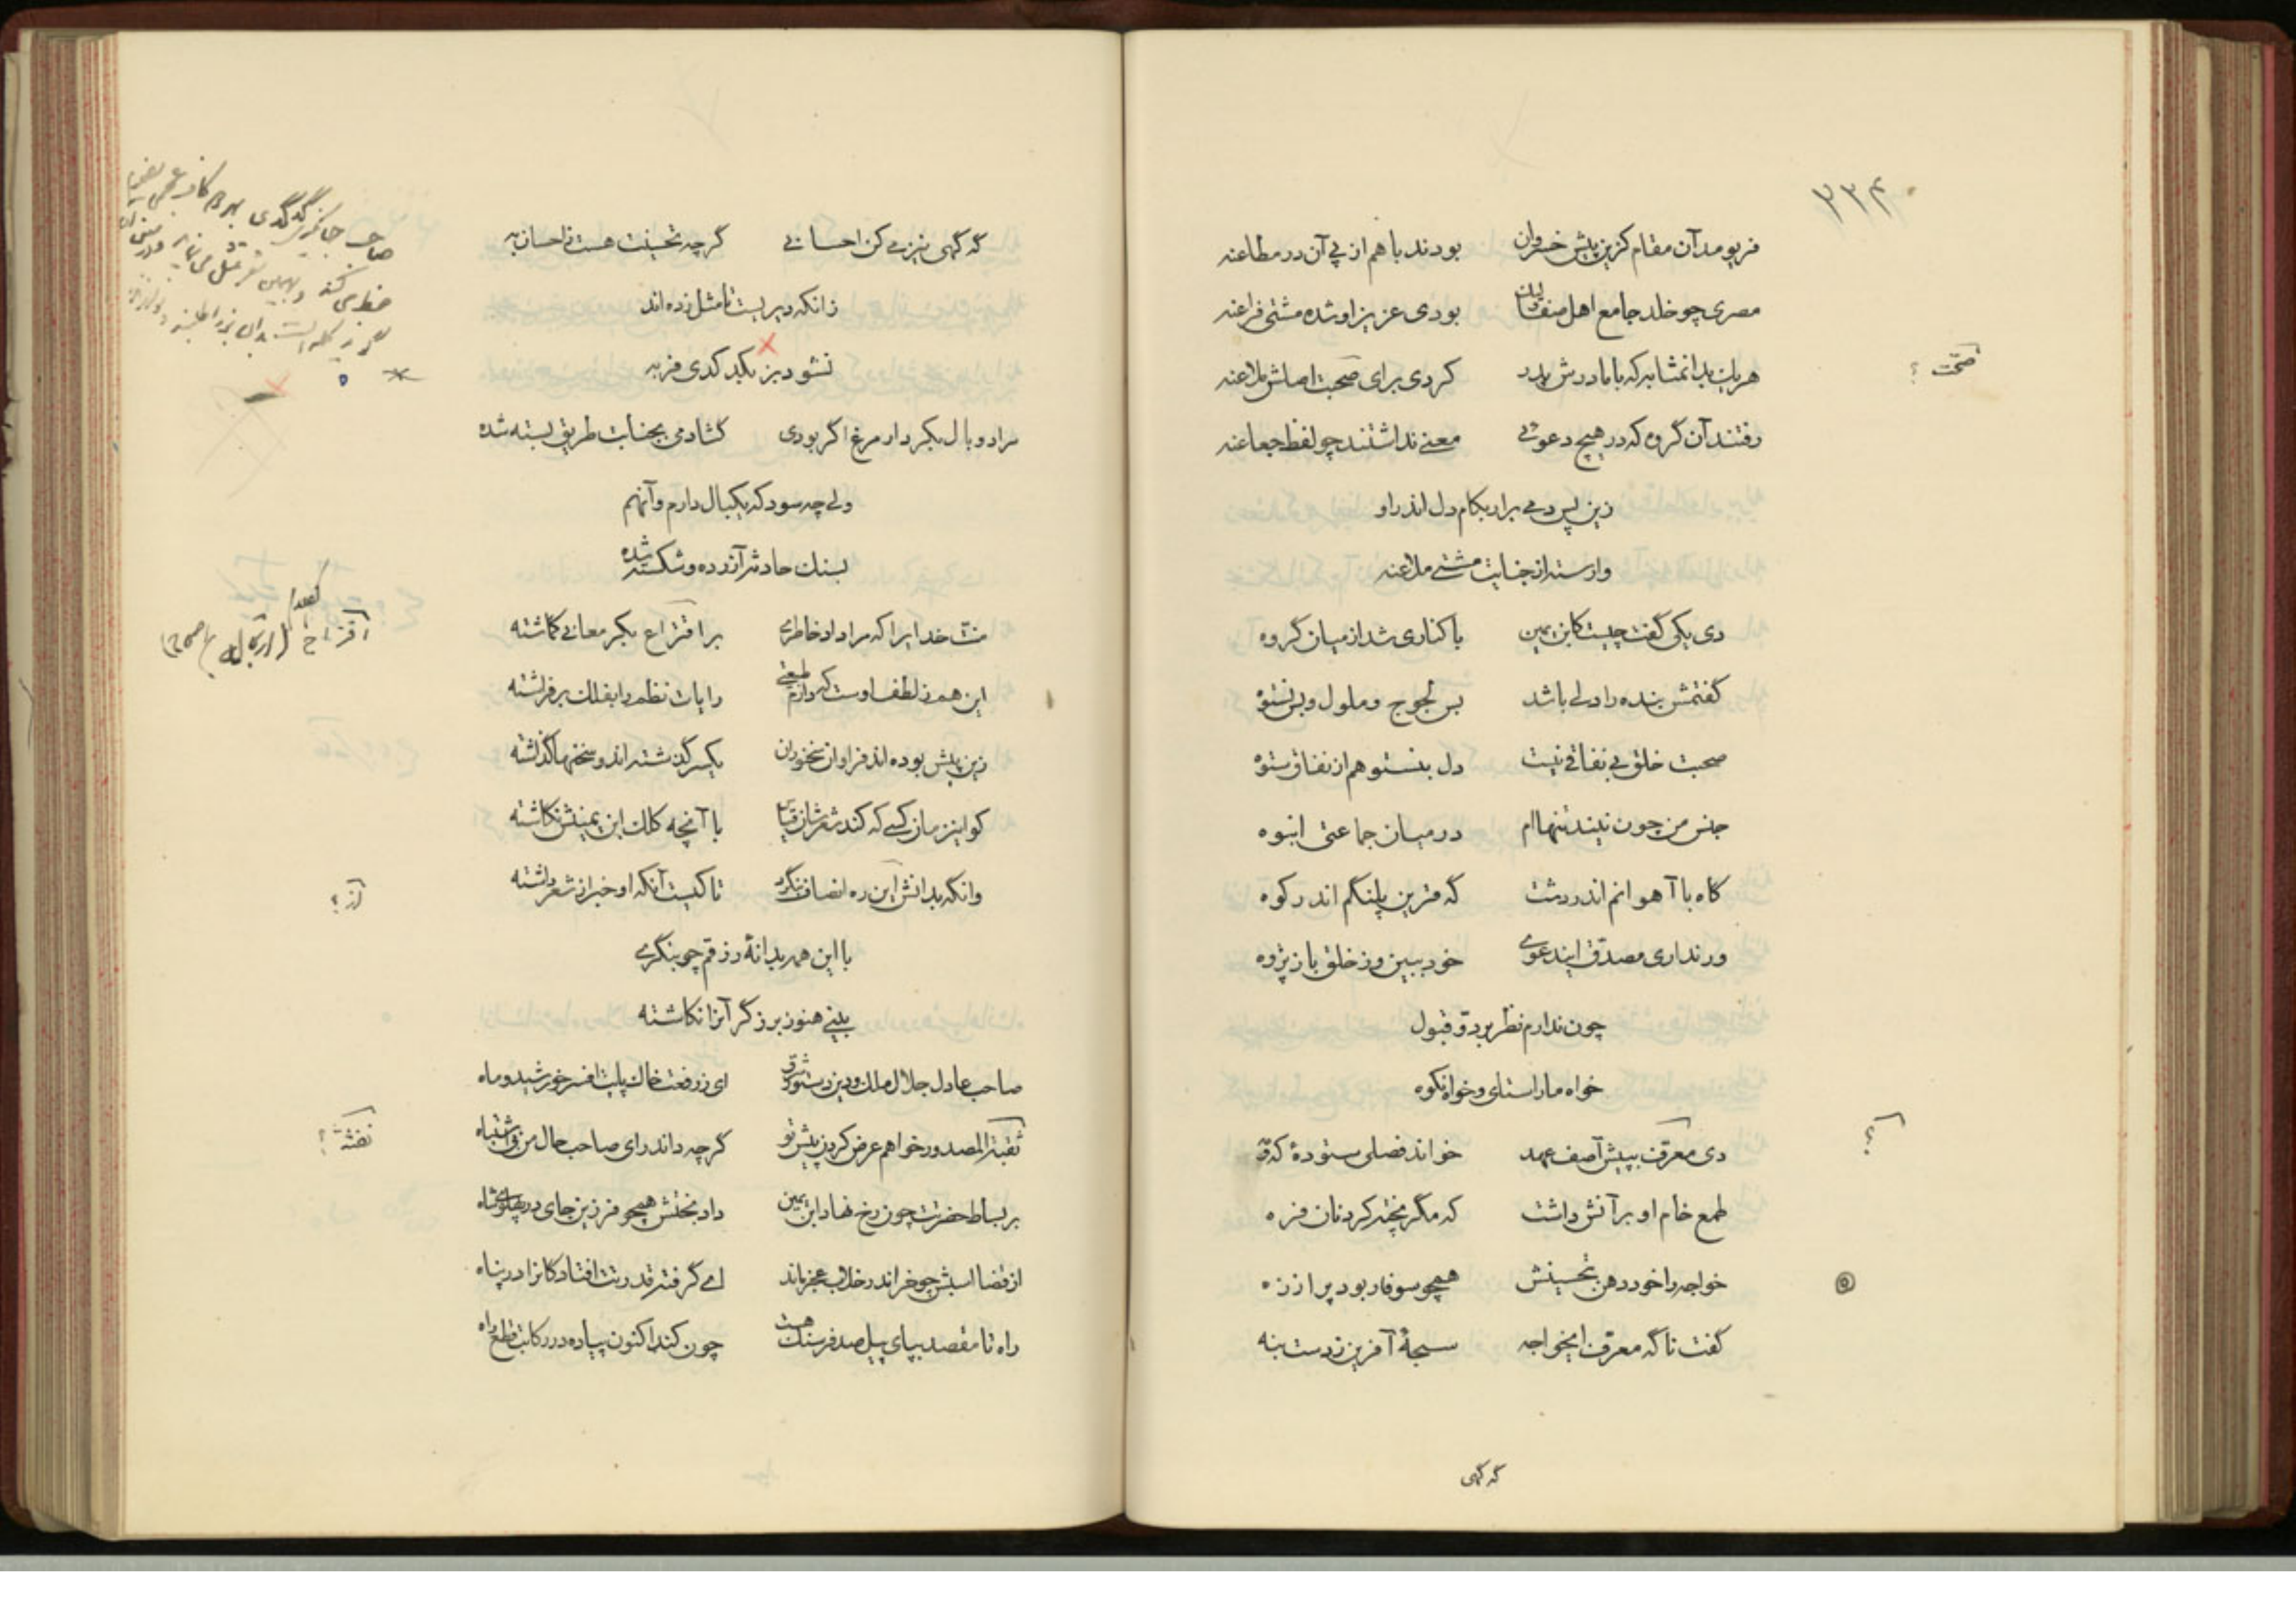 ۲۳۴
فریومد آن مقام کزین پیش خسروان بودند با هم از پی آن در مطاعنه
مصری چو خلد جامع اهل بودی عزیز او شده مشتی فراعنه
هر یک بدانمشابه که با مادرش پدر کردی برای صحبت اصلش ملاعنه
صحّت ؟
رفتند آن گروه که در هیچ دعوتی معنی نداشتند چو لفظ جعاعنه
زین پس دمی برار بکام دل اندر او
وارسته از جنایت مشتی ملاعنه
دی یکی گفت چیست کابن یمین با کناری شد از میان گروه
گفتمش بنده را دلی باشد بس لجوج و ملول و بس نستوه
صحبت خلق بی نفاقی نیست دل بنستوهم از نفاق ستوه
جنس من چون نیند تنهاام در میان جماعتی انبوه
گاه با آهوانم اندر دشت گه قرین پلنگم اندر کوه
ور نداری مصدّق ایندعوی خود ببین وز خلق باز پژوه
چون ندارم نظر بردّ و قبول
خواه ما را ستای و خواه نکوه
دی معرّف بپیش آصف عهد خواند فصلی ستوده که و مه
؟
طمع خام او بر آتش داشت که مگر پخته کرد نان فره
خواجه را خود دهن بتحسینش همچو سوفار بود پر از زه
گفت ناگه معرّف ایخواجه سبحهٔ آفرین ز دست بنه
گه گهی
گه گهی نیز می کن احسانی گرچه تحسینت هست احسان به
زانکه دیریست تا مثل زده اند
نشود بز بکدکدی فربه
مرا دو بال بکردار مرغ اگر بودی گشادمی بجنابت طریق بسته شده
ولی چه سود که یکبال دارم و آنهم
بسنک حادثه آزرده و شکسته شده
منّت خدایرا که مرا داد خاطری بر افتراع بکر معانی گماشته
این هم ز لطف اوست که دارم طبعی رایات نظم را بفلک بر فراشته
زین پیش بوده اند فراوان سخنوران یکسر گذشته اند و سخنها گذاشته
کو اینزمان کسی که کند شعرشان قیاس با آنچه کلک ابن یمینش نگاشته
وانکه بدانش این ره انصاف بنگرد تا کیست آنکه او خبر از شعر داشته
از ؟
با این همه بدانهٔ رزقم چو بنگری
بینی هنوز برزگر آنرا نکاشته
صاحب عادل جلال ملک و دین دستور شرق ای ز رفعت خاک پایت افسر خورشید و ماه
نفثة المصدور خواهم عرض کردن پیش تو گرچه داند رای صاحب حال من بی اشتباه
نفثة ؟
بر بساط حضرتت چون رخ نهاد ابن یمین داد بختش همچو فرزین جای در پهلوی شاه
از قضا اسبش چو خر اندر خلاب عجز ماند ای گرفته قدرتت افتادگانرا در پناه
راه تا مقصد بپای پیل صد فرسنگ هست چون کند اکنون پیاده در رکابت قطع راه